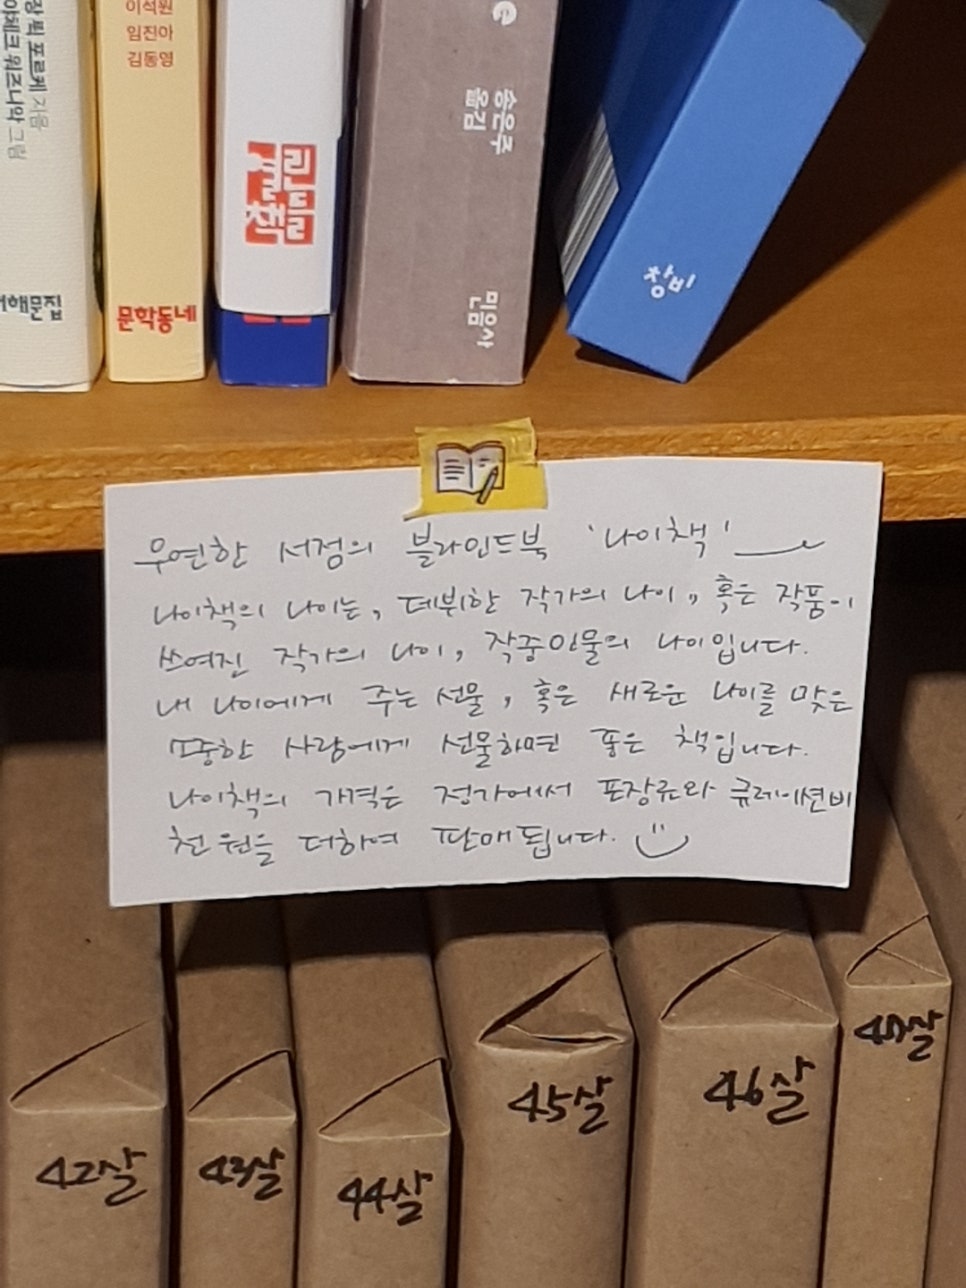 장 픽 포르케 지음
아체크 워즈니악 그림
서해문집
이석원
임진아
김동영
문학동네
린틴틴
책
e
송은주 옮김
민음사
창비
우연한 서점의 블라인드북 '나이책'
나이책의 나이는, 데뷔한 작가의 나이, 혹은 작품이
쓰여진 작가의 나이, 작중인물의 나이입니다.
내 나이에게 주는 선물, 혹은 새로운 나이를 맞은
소중한 사람에게 선물하면 좋은 책입니다.
나이책의 가격은 정가에서 포장료와 큐레이션비
천원을 더하여 판매됩니다.
42살
43살
44살
45살
46살
47살